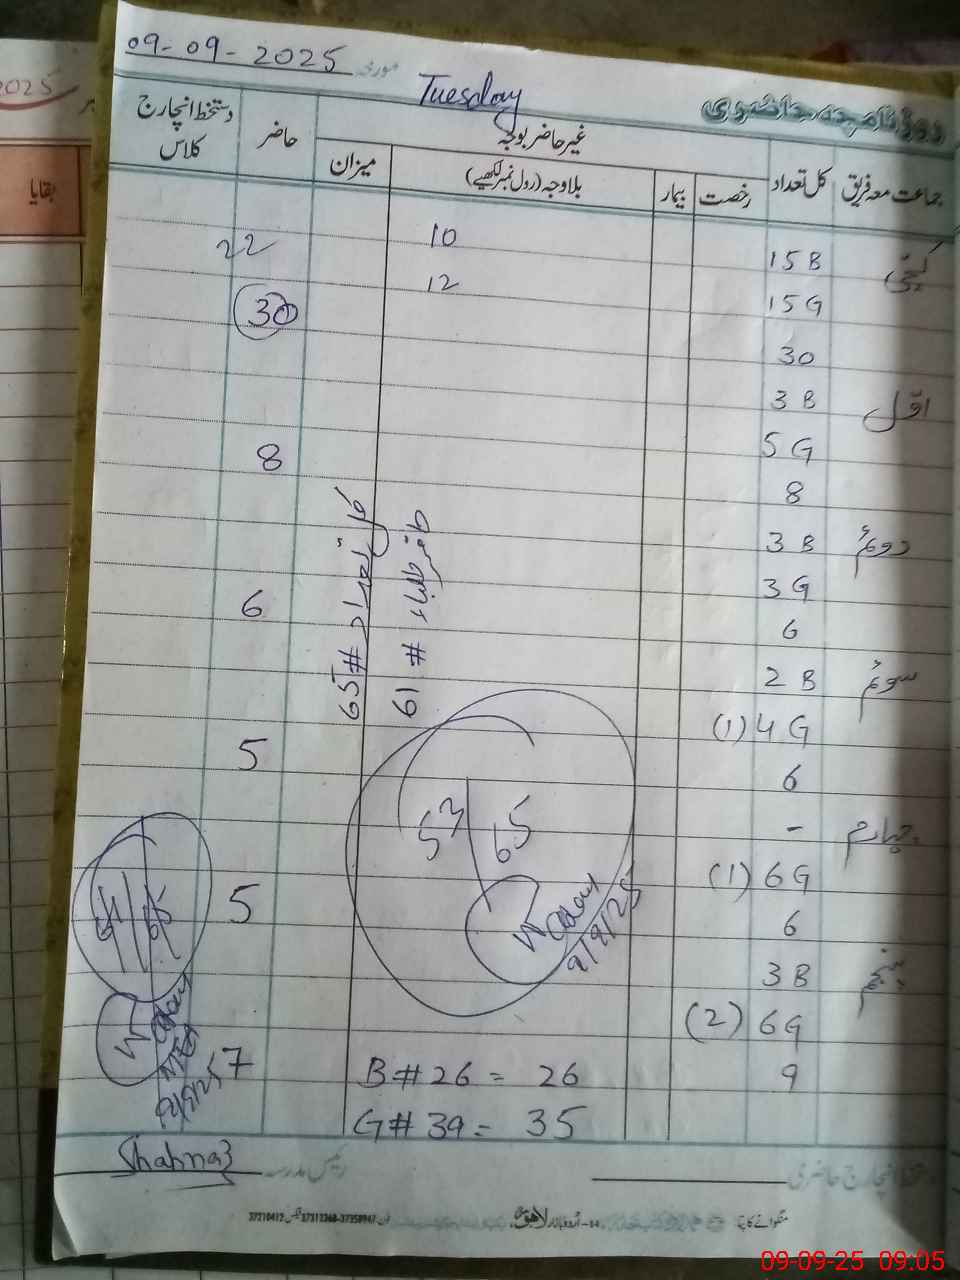 09-09-2025 مورخہ
Tuesday
روزنامچہ حاضری
جماعت معہ فریق
کل تعداد
رخصت
بیمار
غیر حاضر بوجہ
بلاوجہ (رول نمبر لکھیے)
میزان
حاضر
دستخط انچارج کلاس
2025
بقایا
کچی 15 B 10 22
15 G 12 30
30
اوّل 3 B
5 G 8
8
دوئم 3 B
3 G 6
6
سوئم 2 B
(1) 4 G 5
6
چہارم -
(1) 6 G 5
6
پنجم 3 B
(2) 6 G
9 7
کل تعداد # 65
حاضر طلباء # 61
53 65
9/9/25
MEA
9/9/25
B # 26 = 26
G # 39 = 35
دستخط انچارج حاضری
رئیس مدرسہ Shahnaz
منگوانے کا پتہ
اُردو بازار لاہور
09-09-25 09:05